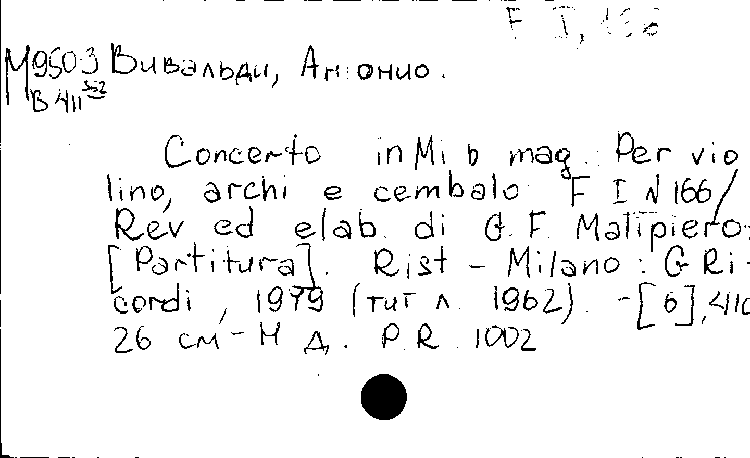 F I, 136
М9503 Вивальди, Антонио.
В 411
Concerto in Mi b mag. Per vio
lino, archi e cembalo F I N 166/
Rev ed elab. di G. F. Malipiero:
[Partitura]. Rist - Milano : G Ri-
cordi, 1979 (тит л. 1962). -[6], 41с
26 см - Н Д. P.R. 1002